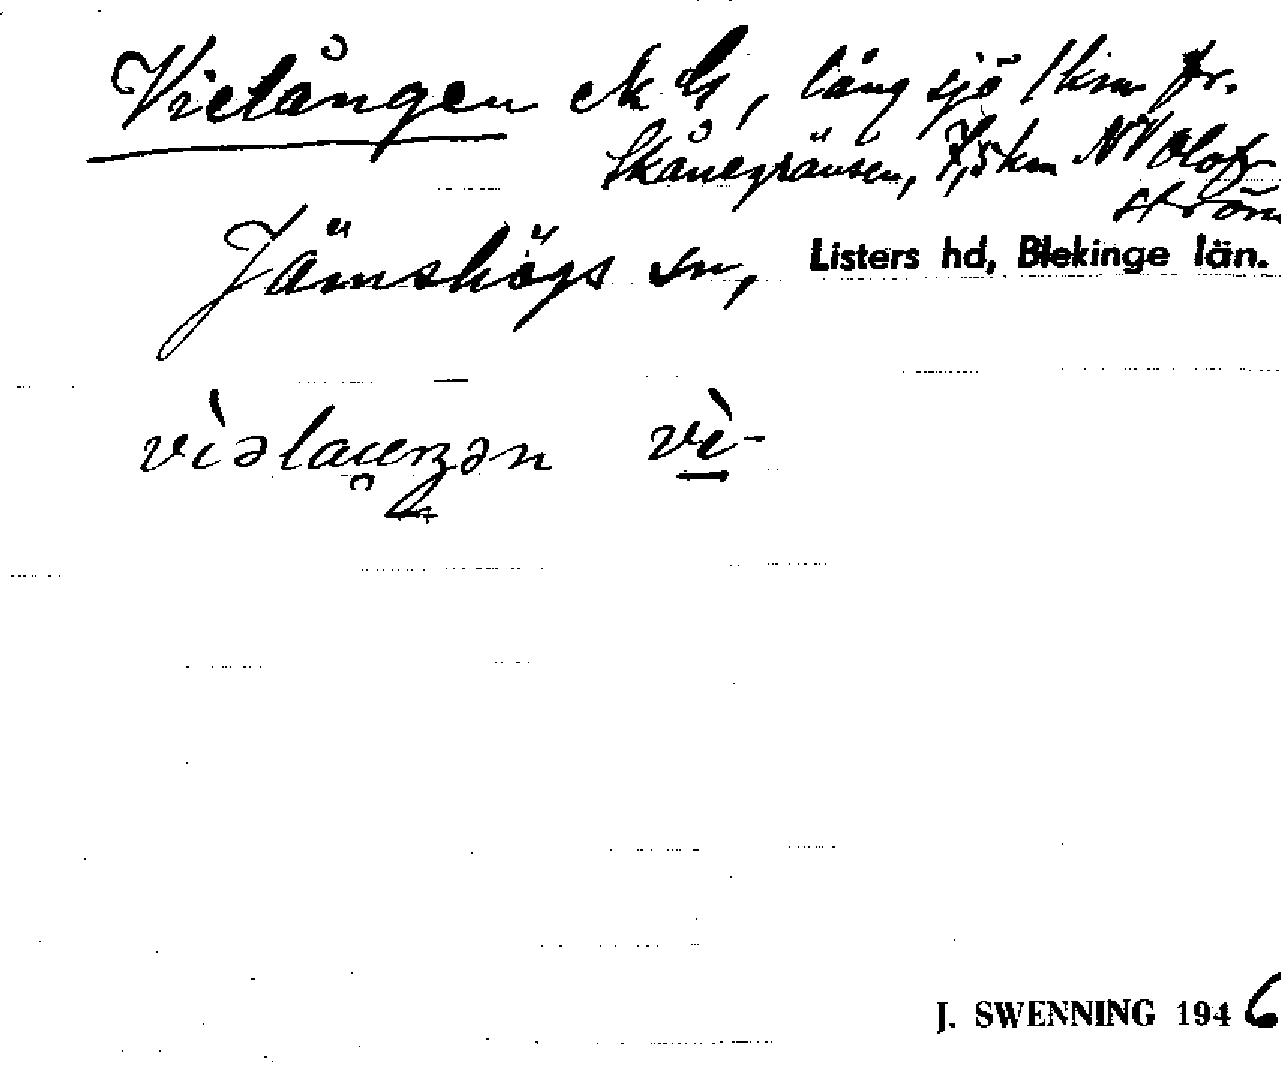 Vielången ek G, lång sjö 1 km fr.
Skånegränsen, 7,5 km NV Olofs-
ström
Jämshögs sn, Listers hd, Blekinge län.
vìəlauŋən vì-
J. SWENNING 1946